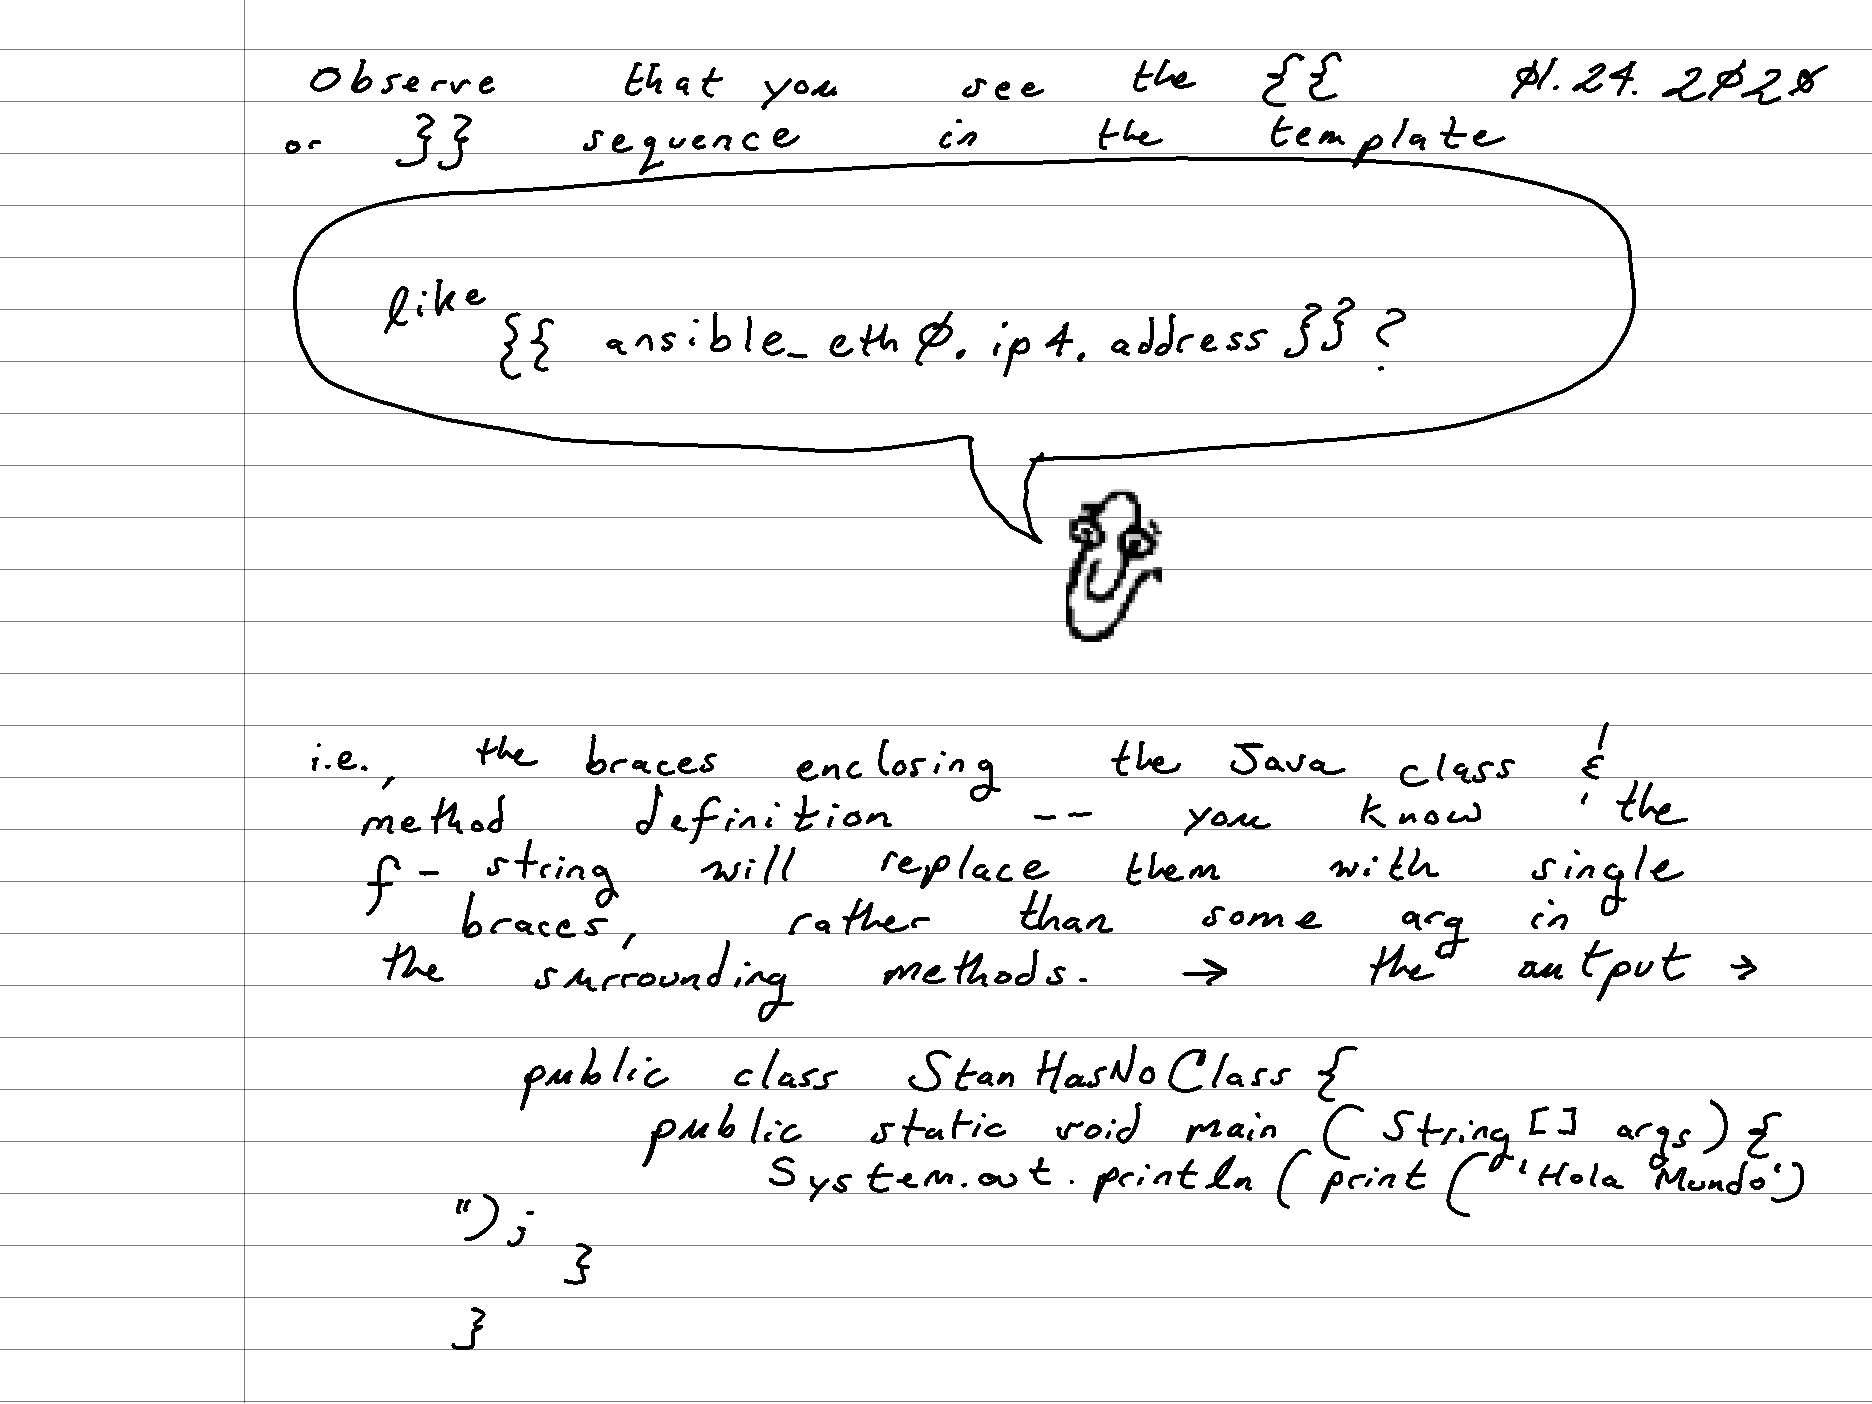 Observe that you see the {{ 01.24.2020
or }} sequence in the template
like
{{ ansible_eth0.ip4.address }}?
i.e., the braces enclosing the Java class &
method definition -- you know ' the
f-string will replace them with single
braces, rather than some arg in
the surrounding methods. → the output →
public class StanHasNoClass {
public static void main (String[] args) {
System.out.println(print("'Hola Mundo')
");
}
}